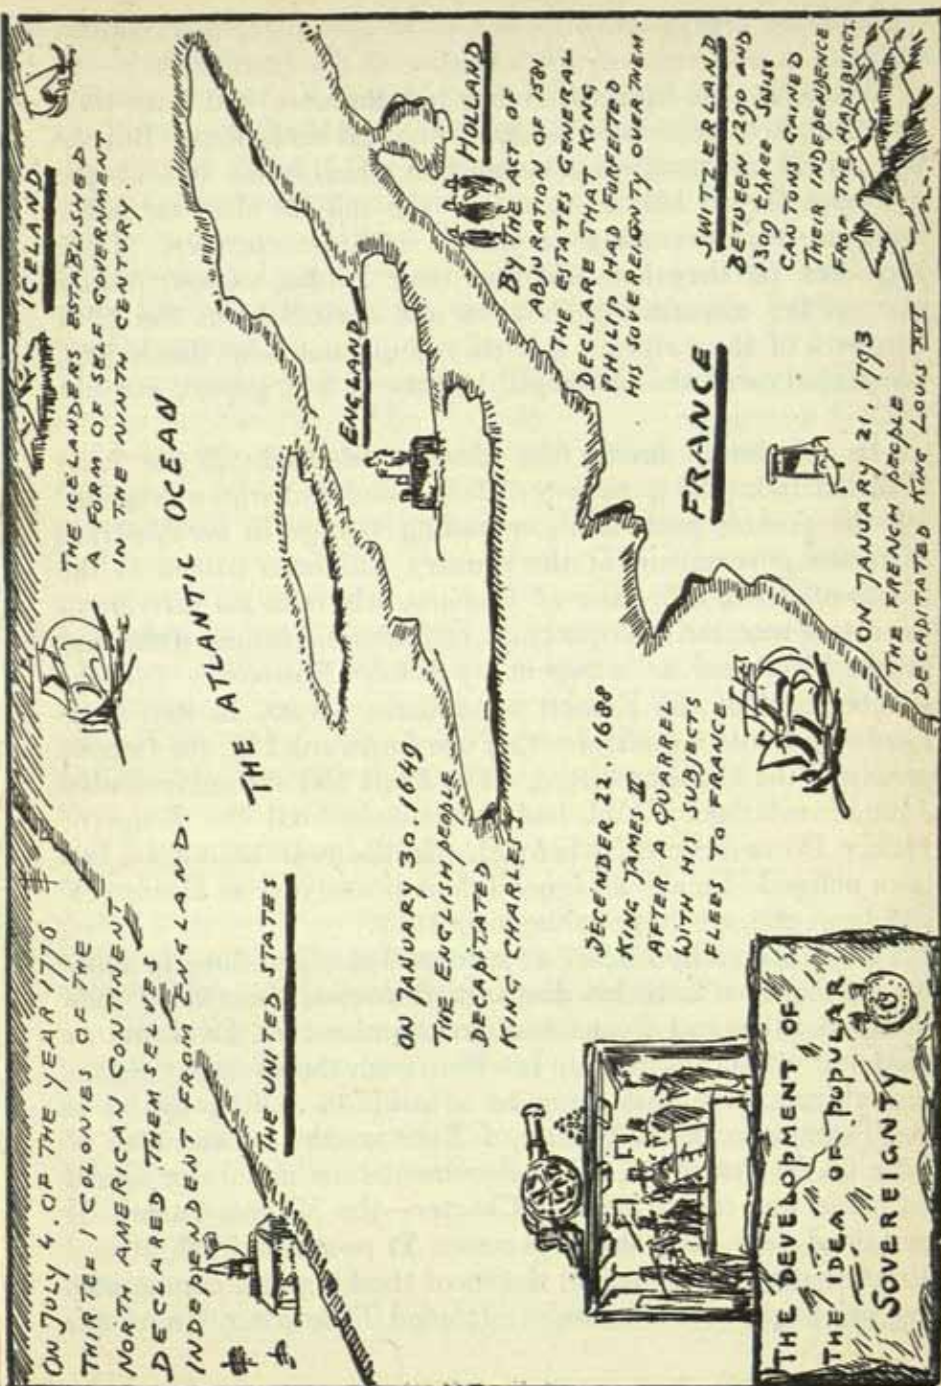 ON JULY 4. OF THE YEAR 1776
THIRTEEN COLONIES OF THE
NORTH AMERICAN CONTINENT
DECLARED THEMSELVES
INDEPENDENT FROM ENGLAND
THE UNITED STATES
ICELAND
THE ICELANDERS ESTABLISHED
A FORM OF SELF GOVERNMENT
IN THE NINTH CENTURY.
THE ATLANTIC OCEAN
ENGLAND
ON JANUARY 30. 1649.
THE ENGLISH PEOPLE
DECAPITATED
KING CHARLES I
DECEMBER 22. 1688
KING JAMES II
AFTER A QUARREL
WITH HIS SUBJECTS
FLEES TO FRANCE.
HOLLAND
BY THE ACT OF
ABJURATION OF 1581
THE ESTATES GENERAL
DECLARE THAT KING
PHILIP HAD FORFEITED
HIS SOVERENTY OVER THEM.
SWITZERLAND
BETWEEN 1290 AND
1309 three SWISS
CANTONS GAINED
THEIR INDEPENDENCE
FROM THE HAPSBURGS.
FRANCE
ON JANUARY 21. 1793
THE FRENCH PEOPLE
DECAPITATED KING LOUIS XVI
THE DEVELOPMENT OF
THE IDEA OF PUPULAR
SOVEREIGNTY